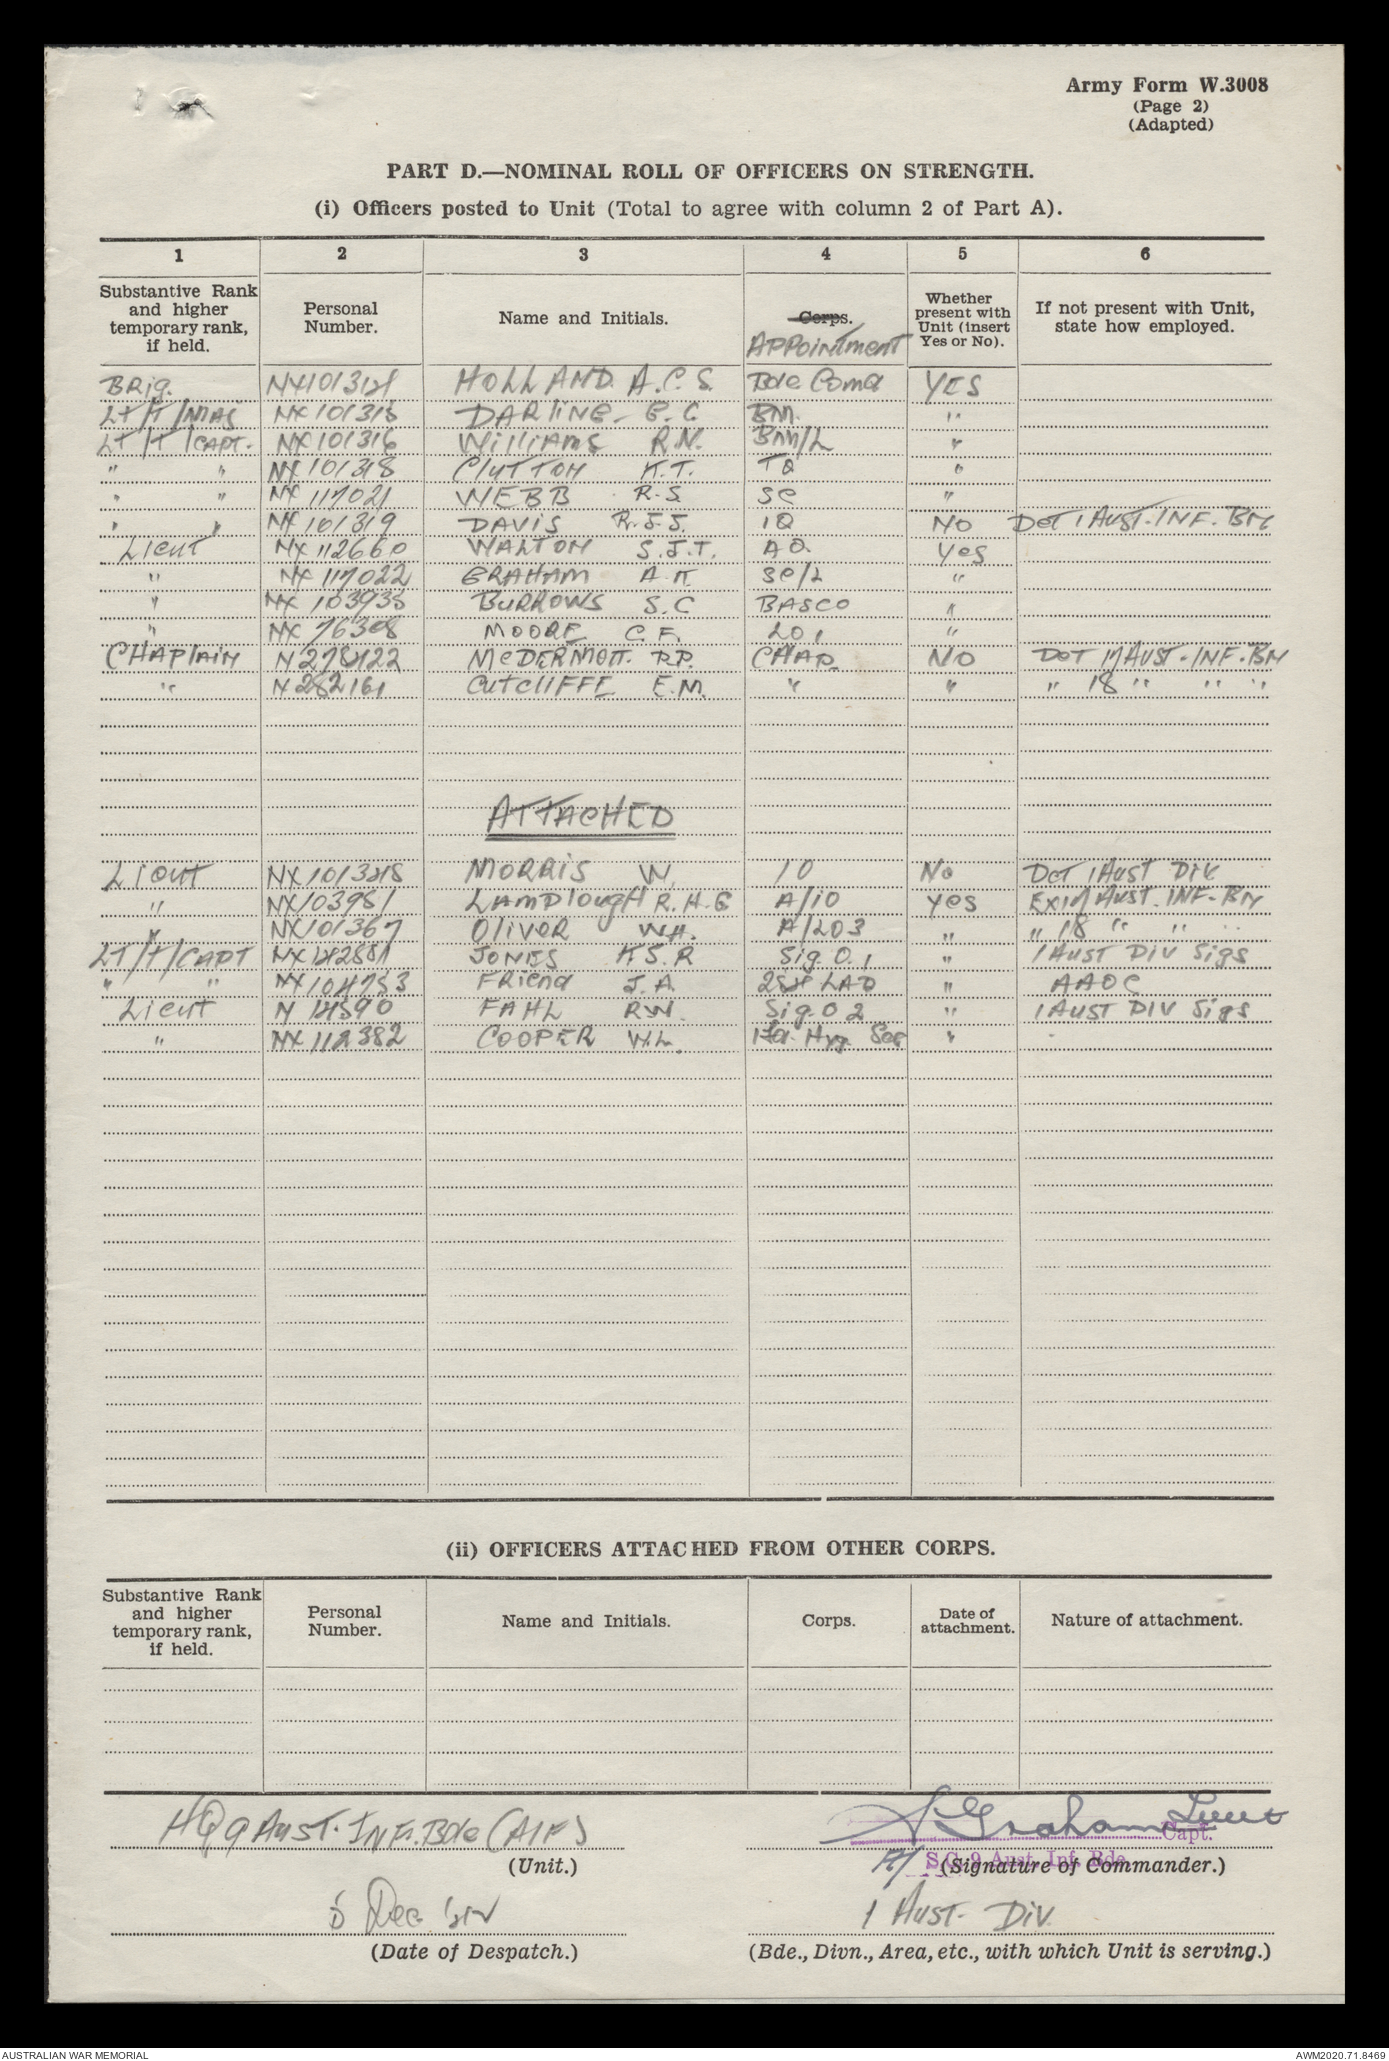 Army Form W.3008
(Page 2)
(Adapted)
PART D.—NOMINAL ROLL OF OFFICERS ON STRENGTH.
(i) Officers posted to Unit (Total to agree with column 2 of Part A).
1 2 3 4 5 6
Substantive Rank and higher temporary rank, if held. Personal Number. Name and Initials. Corps. APPOINTMENT Whether present with Unit (insert Yes or No). If not present with Unit, state how employed.
BRIG. HOLLAND. A.C.S. Bde Comd YES
LT/T/MAJ DARLING E.C BM. "
LT/T/CAPT. NX101316 WILLIAMS R.N. BM/L "
" " CLUTTON K.T. TO "
" " NX 117021 WEBB R.S. SC "
" " NX 101319 DAVIS R.J.J. IO NO DET 1 AUST. INF. BN
LIEUT NX 112660 WALTON S.J.T. AO. YES
" NX 117022 GRAHAM A.K. SC/L "
" NX 103935 BURROWS S.C BASCO "
" MOORE C.F. LO 1 "
CHAPLAIN McDERMOTT. P.P. CHAP. NO DET 17 AUST. INF. BN
" N 282161 CUTCLIFFE E.M. " " " 18 " " "
ATTACHED
LIEUT MORRIS W. IO No DET 1 AUST DIV.
" NX103981 LAMPLOUGH R.H.G A/IO YES EX 17 AUST. INF. BN
" NX101367 OLIVER W.H. A/LO3 " " 18 " " "
LT/T/CAPT JONES K.S.R Sig. O. 1 " 1 AUST DIV Sigs
" " NX104753 FRIEND J.A. LAD " AAOC
LIEUT FAHL R.W. Sig. O 2 " 1 AUST DIV Sigs
" NX 112382 COOPER W.L. Hyg. Sec "
(ii) OFFICERS ATTACHED FROM OTHER CORPS.
Substantive Rank and higher temporary rank, if held. Personal Number. Name and Initials. Corps. Date of attachment. Nature of attachment.
HQ 9 AUST. INF. Bde (AIF) Graham Lieut
Capt.
(Unit.) S.C. 9 Aust. Inf. Bde. (Signature of Commander.)
Dec 1 AUST. DIV.
(Date of Despatch.) (Bde., Divn., Area, etc., with which Unit is serving.)
AUSTRALIAN WAR MEMORIAL AWM2020.71.8469